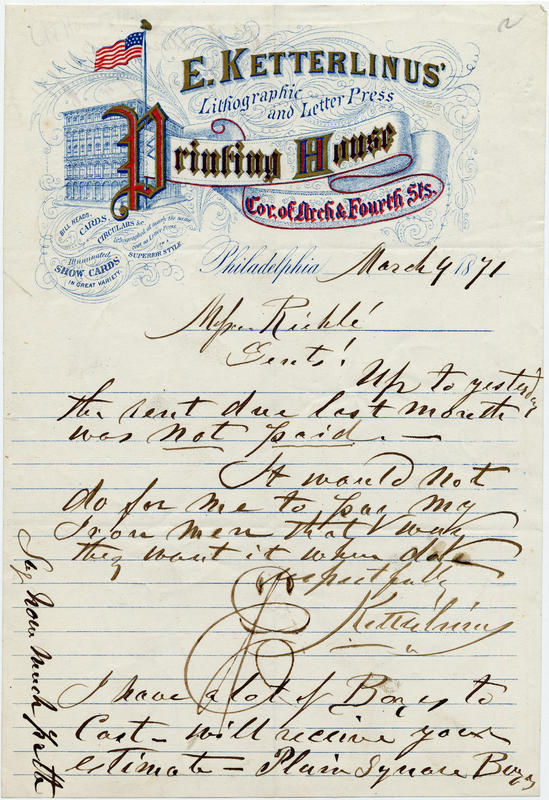 E. KETTERLINUS'
Lithographic
and Letter Press
Printing House
Cor. of Arch & Fourth Sts.
BILL HEADS,
CARDS,
CIRCULARS &c
lithographed at nearly the same
Cost as Letter Press
IN A
SUPERIOR STYLE
Illuminated
SHOW CARDS
IN GREAT VARIETY.
Philadelphia March 9 1871
Messrs Riehlé
Gents!
Up to yesterday
the rent due last month
was not paid. —
It would not
do for me to pay my
Iron men that way
they want it when due
Respectfully
E Ketterlinus
I have a lot of Boxes to
Cast — will receive your
estimate — Plain Square Boxes
Say how much per lb